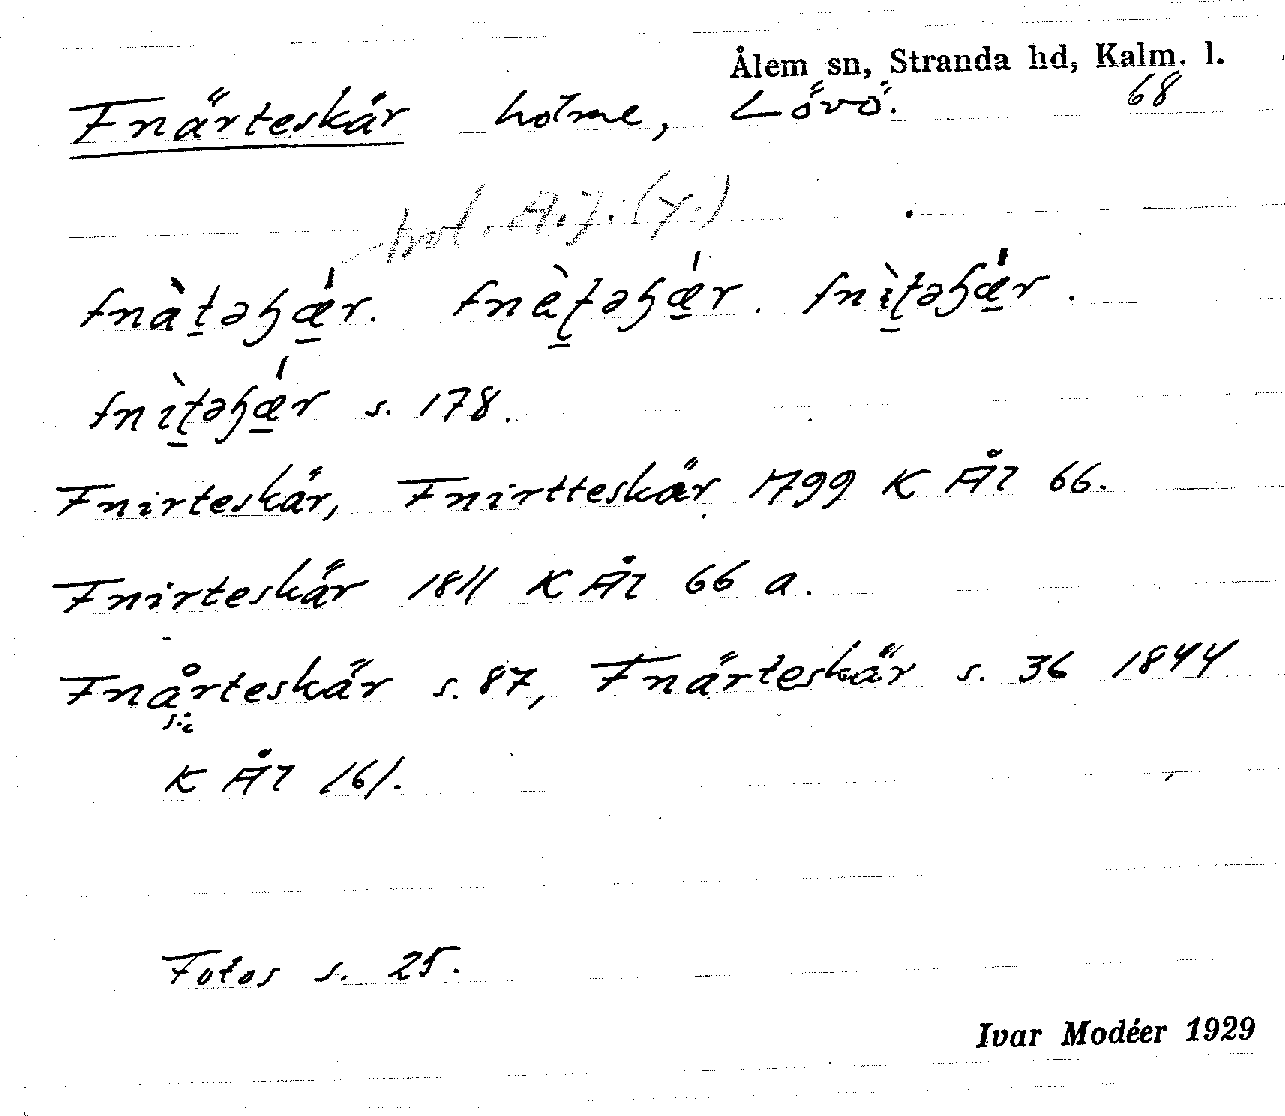 Ålem sn, Stranda hd, Kalm. l.
Fnärteskär holme, Lövö. 68
fnàt̠əɧǽ̠r. fnèt̠əɧǽ̠r. fnìt̠əɧǽ̠r.
fnìt̠əɧǽ̠r s. 178.
Fnirteskär, Fnirtteskär 1799 K Ål 66.
Fnirteskär 1811 K Ål 66 a.
Fnårteskär s. 87, Fnärteskär s. 36 1844
sic
K Ål 161.
Fotos s. 25.
Ivar Modéer 1929